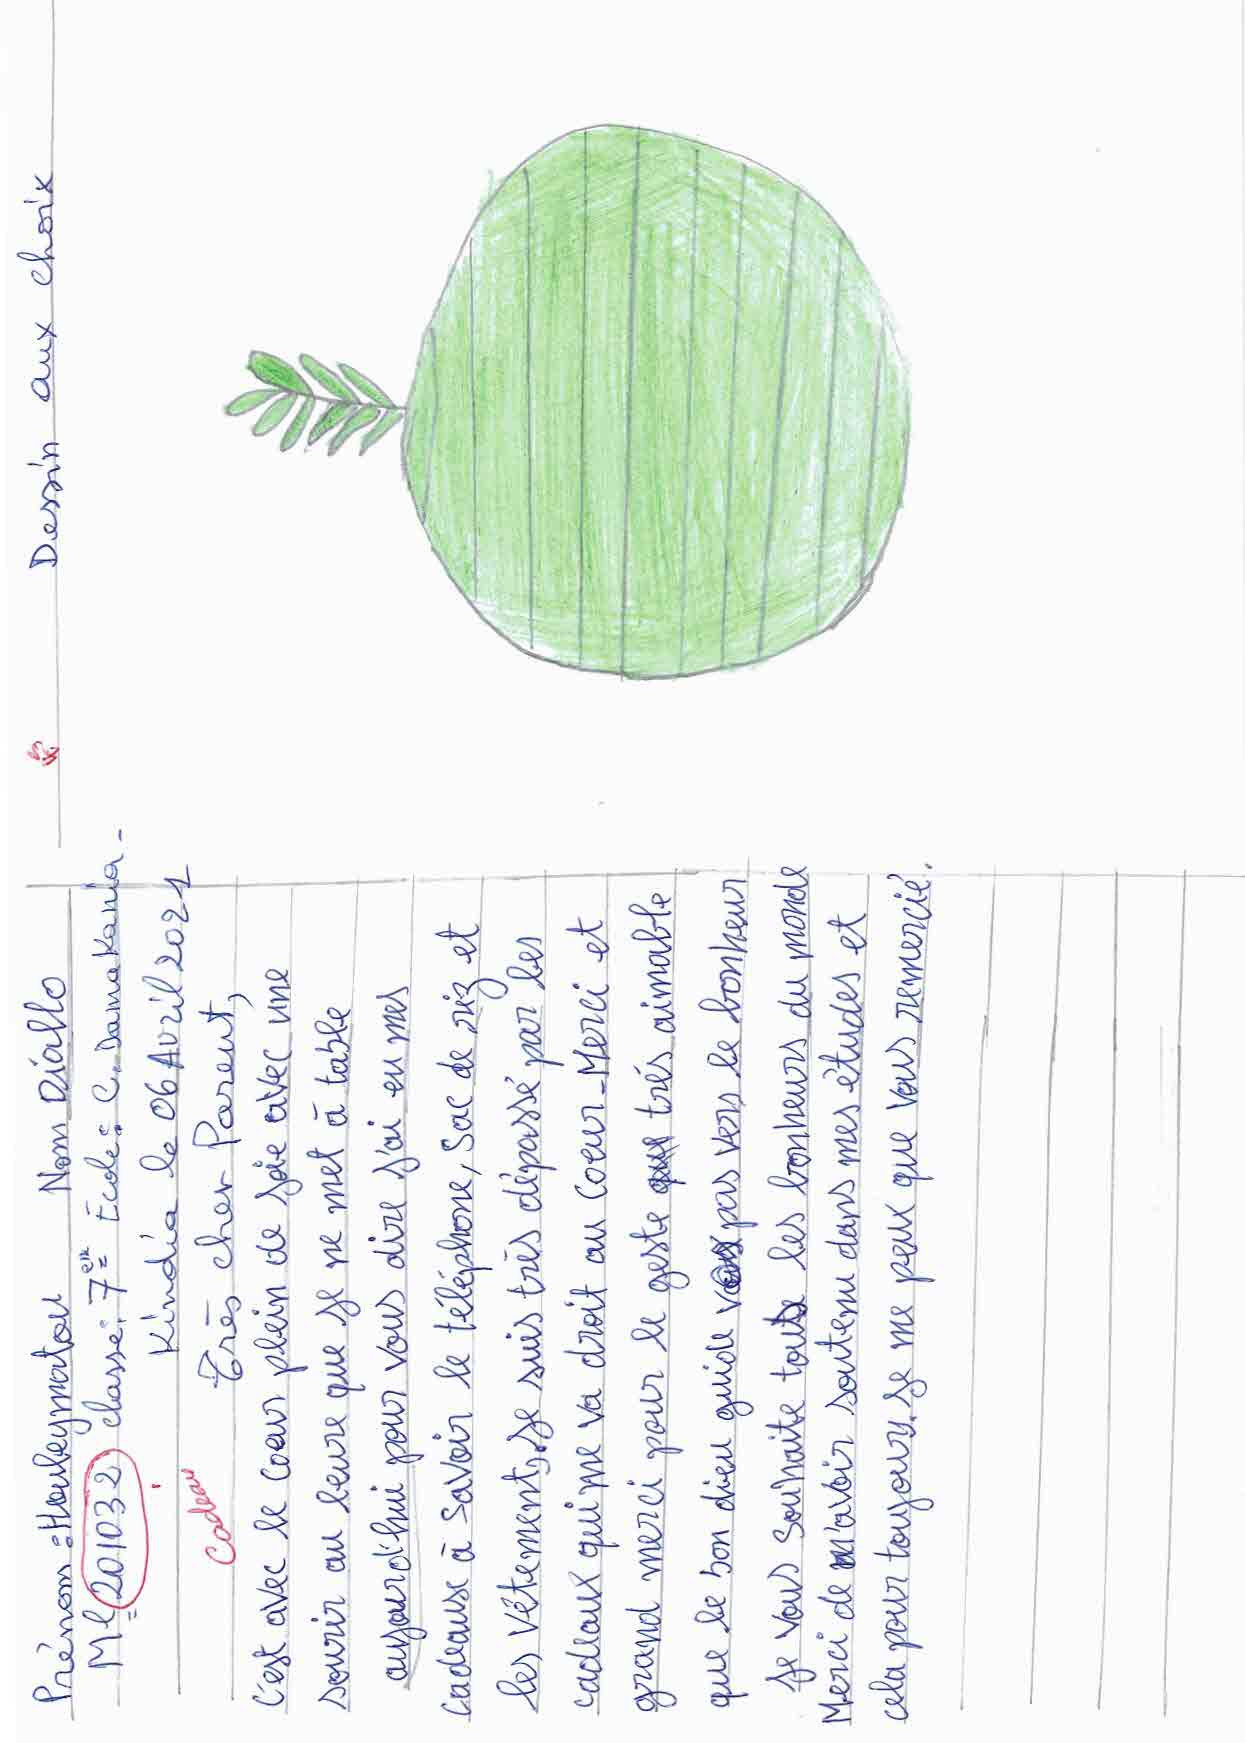 Prénom : Houleymatou Nom Diallo
Ml 201032 classe: 7em Ecole: C. Damakania -
Kindia le 06 Avril 2021
Cadeau
Très cher Parent,
C'est avec le coeur plein de joie avec une
sourir au leure que je me met à table
aujourd'hui pour vous dire j'ai eu mes
cadeaux à savoir le téléphone, Sac de riz et
les vêtement, je suis très dépassé par les
cadeaux qui me va droit au coeur - Merci et
grand merci pour le geste très aimable
que le bon dieu guide vos pas vers le bonheur
Je vous souhaite touts les bonheurs du monde
Merci de m'avoir soutenu dans mes études et
cela pour toujours, je me peux que vous remercié.
Dessin aux choix